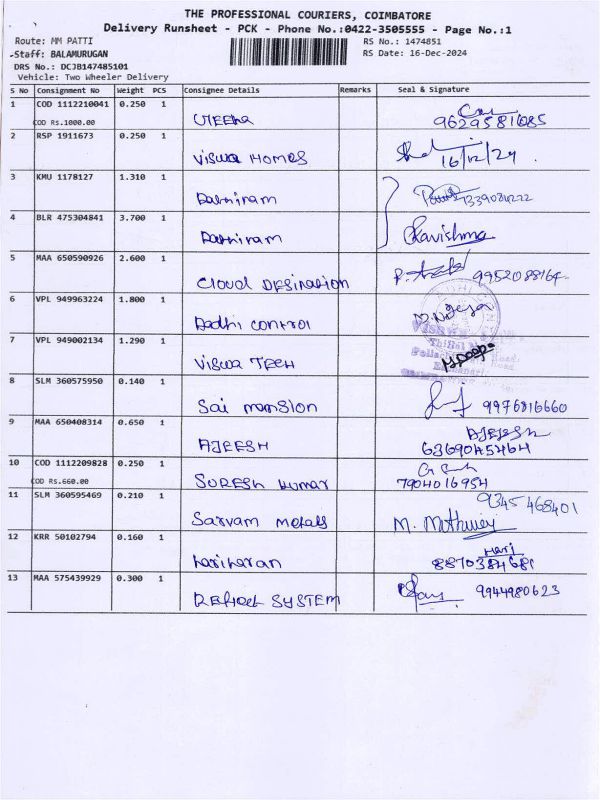 THE PROFESSIONAL COURIERS, COIMBATORE
Delivery Runsheet - PCK - Phone No.:0422-3505555 - Page No.:1
Route: MM PATTI
RS No.: 1474851
Staff: BALAMURUGAN
RS Date: 16-Dec-2024
DRS No.: DCJB147485101
Vehicle: Two Wheeler Delivery
S No Consignment No Weight PCS Consignee Details Remarks Seal & Signature
1 COD 1112210041 0.250 1
COD Rs.1000.00
9629581685
2 RSP 1911673 0.250 1
Viswa Homes 16/12/24
3 KMU 1178127 1.310 1
4 BLR 475304841 3.700 1
Kavishma
5 MAA 650590926 2.600 1
Cloud Desination 9952088164
6 VPL 949963224 1.800 1
Control
7 VPL 949002134 1.290 1
Viswa Tech M.Deepa
8 SLM 360575950 0.140 1
Sai mansion 9976816660
9 MAA 650408314 0.650 1
AJEESH
6369045464
10 COD 1112209828 0.250 1
COD Rs.660.00
SURESH kumar 7904016954
11 SLM 360595469 0.210 1
9345468401
Sarvam metals
12 KRR 50102794 0.160 1
Hari
hariharan 8870384681
13 MAA 575439929 0.300 1
9944980623
SYSTEM